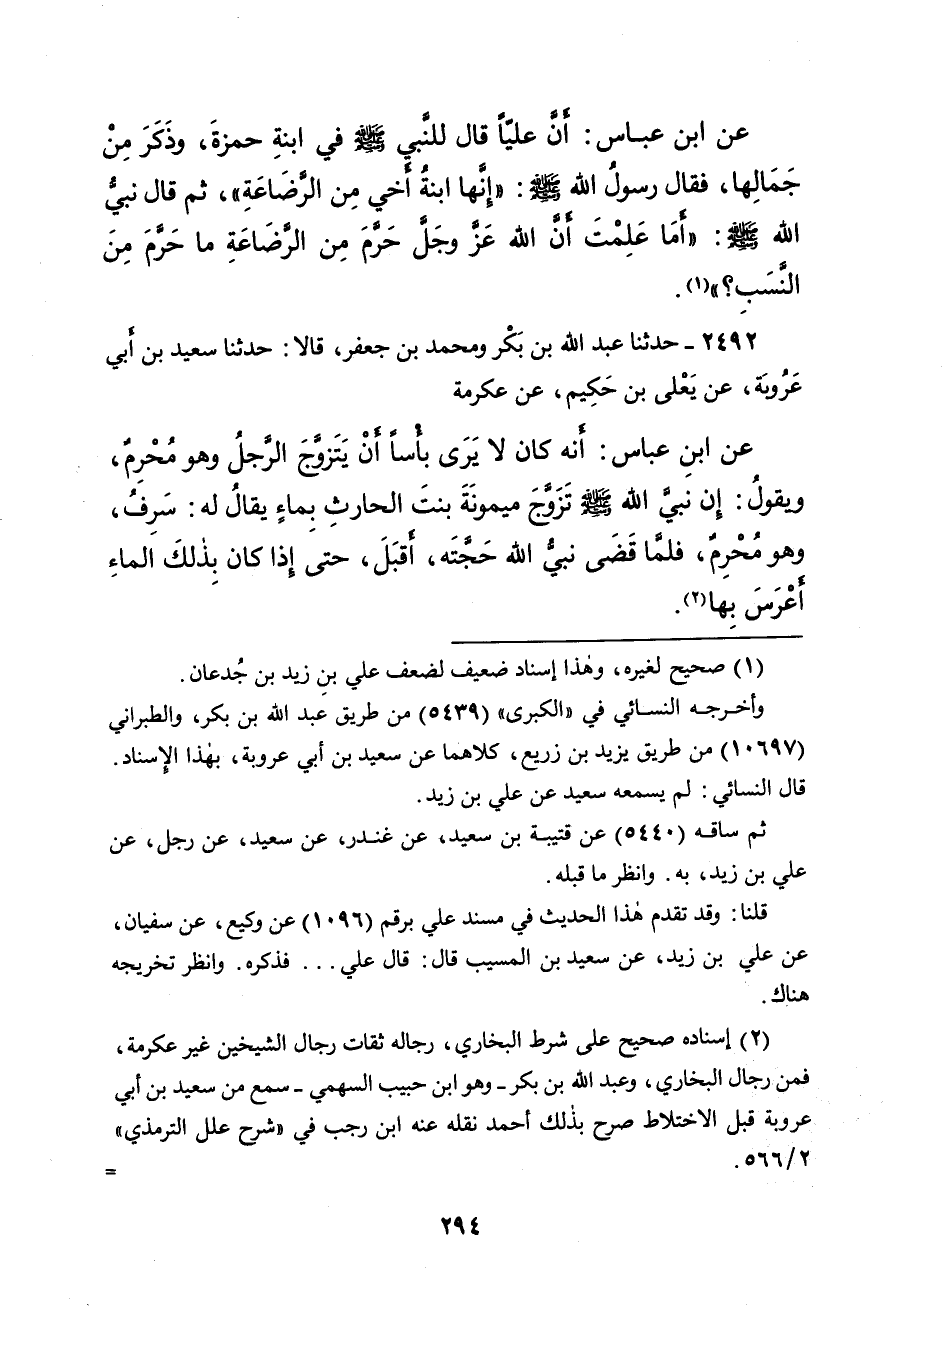 عن ابن عباس: أَنَّ عليّاً قال للنَّبي ﷺ في ابنةِ حمزةَ، وذَكَرَ مِنْ
جَمَالِها، فقال رسولُ الله ﷺ: «إِنَّها ابنةُ أَخي مِن الرَّضَاعَةِ»، ثم قال نبيُّ
الله ﷺ: «أَمَا عَلِمْتَ أَنَّ الله عَزَّ وجَلَّ حَرَّمَ مِن الرَّضَاعَةِ ما حَرَّمَ مِنَ
النَّسَبِ؟»(١).
٢٤٩٢ ـ حدثنا عبد الله بن بَكْر ومحمد بن جعفر، قالا: حدثنا سعيد بن أَبي
عَرُوبَة، عن يَعْلى بن حَكِيم، عن عكرمة
عن ابنِ عباس: أَنه كان لا يَرَى بأْساً أَنْ يَتَزوَّجَ الرَّجلُ وهو مُحْرِمٌ،
ويقولُ: إِن نبيَّ الله ﷺ تَزَوَّجَ ميمونَةَ بنتَ الحارثِ بِماءٍ يقالُ له: سَرِفُ،
وهو مُحْرِمٌ، فلمَّا قَضَى نبيُّ الله حَجَّتَه، أَقبَلَ، حتى إِذا كان بِذٰلكَ الماءِ
أَعْرَسَ بِها(٢).
(١) صحيح لغيره، وهٰذا إسناد ضعيف لضعف علي بن زيد بن جُدعان.
وأخرجه النسائي في «الكبرى» (٥٤٣٩) من طريق عبد الله بن بكر، والطبراني
(١٠٦٩٧) من طريق يزيد بن زريع، كلاهما عن سعيد بن أبي عروبة، بهٰذا الإِسناد.
قال النسائي: لم يسمعه سعيد عن علي بن زيد.
ثم ساقه (٥٤٤٠) عن قتيبة بن سعيد، عن غندر، عن سعيد، عن رجل، عن
علي بن زيد، به. وانظر ما قبله.
قلنا: وقد تقدم هٰذا الحديث في مسند علي برقم (١٠٩٦) عن وكيع، عن سفيان،
عن علي بن زيد، عن سعيد بن المسيب قال: قال علي... فذكره. وانظر تخريجه
هناك.
(٢) إسناده صحيح على شرط البخاري، رجاله ثقات رجال الشيخين غير عكرمة،
فمن رجال البخاري، وعبد الله بن بكر ـ وهو ابن حبيب السهمي ـ سمع من سعيد بن أبي
عروبة قبل الاختلاط صرح بذٰلك أحمد نقله عنه ابن رجب في «شرح علل الترمذي»
٥٦٦/٢.
=
٢٩٤